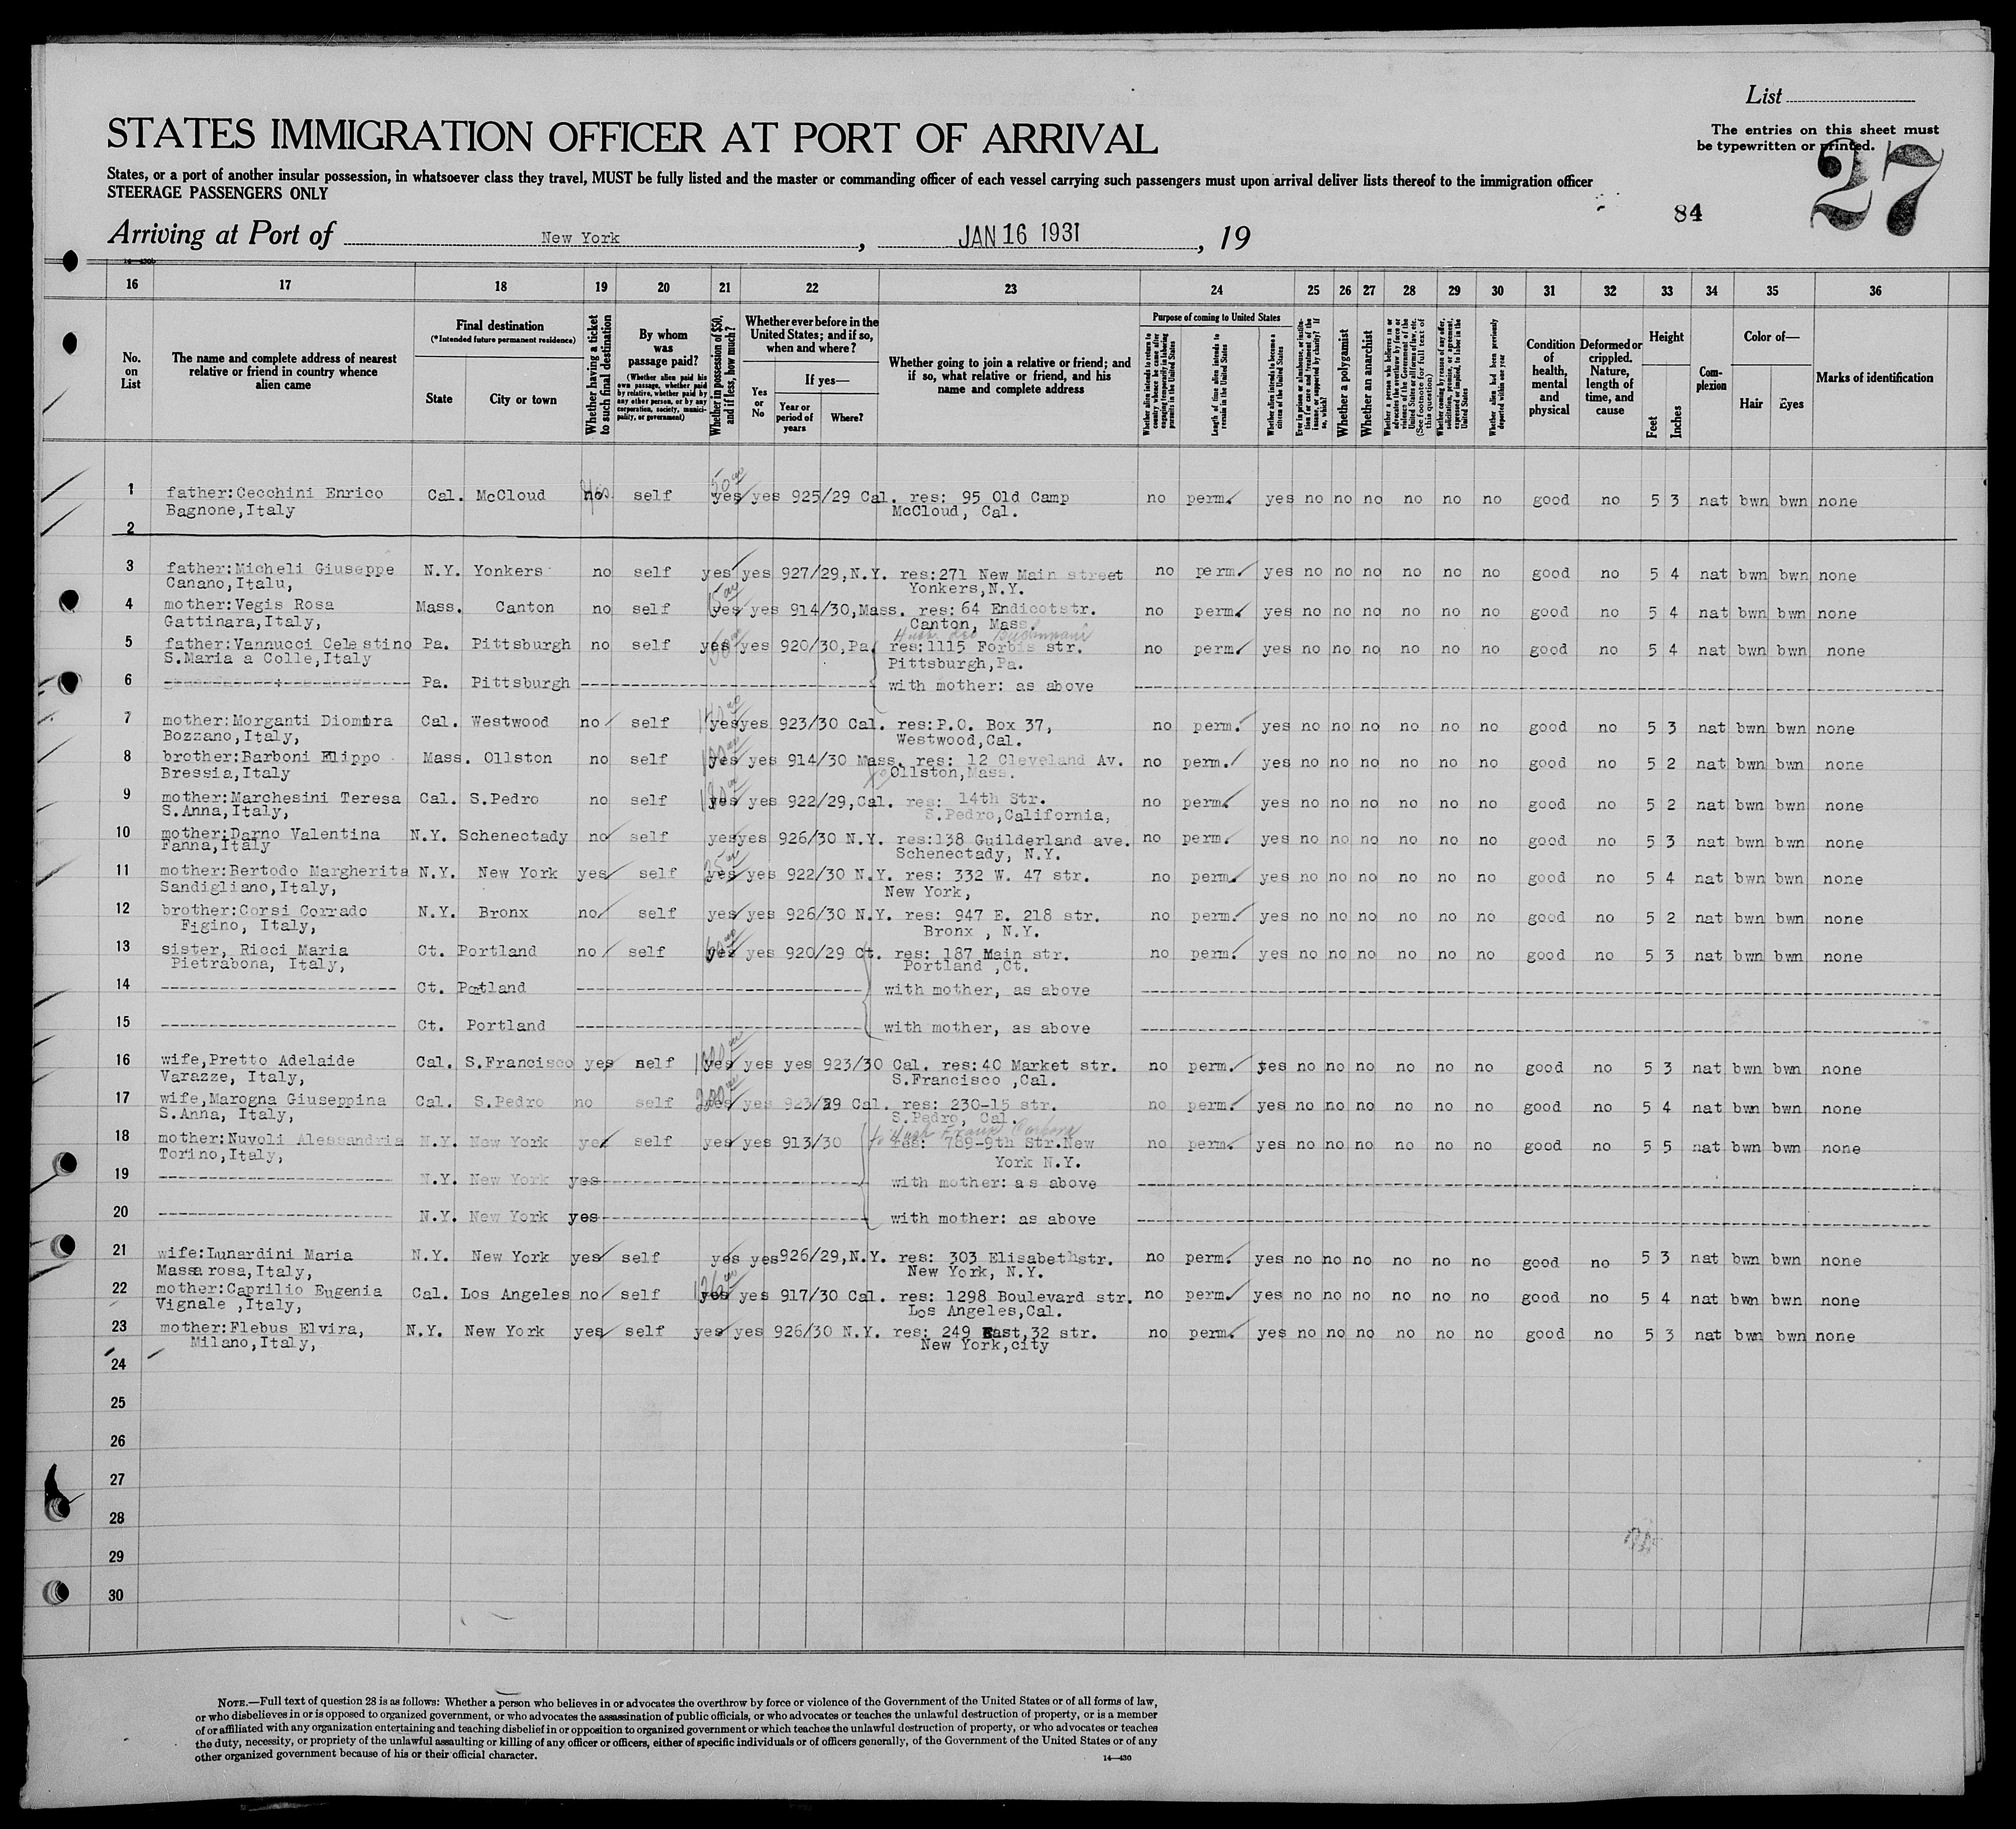 List
The entries on this sheet must
be typewritten or printed.
27
84
STATES IMMIGRATION OFFICER AT PORT OF ARRIVAL
States, or a port of another insular possession, in whatsoever class they travel, MUST be fully listed and the master or commanding officer of each vessel carrying such passengers must upon arrival deliver lists thereof to the immigration officer
STEERAGE PASSENGERS ONLY
Arriving at Port of New York, JAN 16 1931, 19
16 17 18 19 20 21 22 23 24 25 26 27 28 29 30 31 32 33 34 35 36
No. on List
The name and complete address of nearest relative or friend in country whence alien came
Final destination (*Intended future permanent residence)
State
City or town
Whether having a ticket to such final destination
By whom was passage paid?
(Whether alien paid his own passage, whether paid by relative, whether paid by any other person, or by any corporation, society, municipality, or government)
Whether in possession of $50, and if less, how much?
Whether ever before in the United States; and if so, when and where?
Yes or No
If yes—
Year or period of years
Where?
Whether going to join a relative or friend; and if so, what relative or friend, and his name and complete address
Purpose of coming to United States
Whether alien intends to return to country whence he came after engaging temporarily in laboring pursuits in the United States
Length of time alien intends to remain in the United States
Whether alien intends to become a citizen of the United States
Ever in prison or almshouse, or institution for care and treatment of the insane, or supported by charity? If so, which?
Whether a polygamist
Whether an anarchist
Whether a person who believes in or advocates the overthrow by force or violence of the Government of the United States or all forms of law, etc. (See footnote for full text of this question)
Whether coming by reason of any offer, solicitation, promise, or agreement, expressed or implied, to labor in the United States
Whether alien had been previously deported within one year
Condition of health, mental and physical
Deformed or crippled. Nature, length of time, and cause
Height
Feet
Inches
Complexion
Color of—
Hair
Eyes
Marks of identification
1 father:Cecchini Enrico Cal. McCloud no self 50 yes yes 925/29 Cal. res: 95 Old Camp no perm. yes no no no no no no good no 5 3 nat bwn bwn none
Bagnone,Italy McCloud, Cal.
2
3 father:Micheli Giuseppe N.Y. Yonkers no self yes yes 927/29,N.Y. res:271 New Main street no perm. yes no no no no no no good no 5 4 nat bwn bwn none
Canano,Italu, Yonkers,N.Y.
4 mother:Vegis Rosa Mass. Canton no self yes yes 914/30,Mass. res: 64 Endicotstr. no perm. yes no no no no no no good no 5 4 nat bwn bwn none
Gattinara,Italy, Canton, Mass.
5 father:Vannucci Celestino Pa. Pittsburgh no self yes yes 920/30,Pa. res:1115 Forbis str. no perm. yes no no no no no no good no 5 4 nat bwn bwn none
S.Maria a Colle,Italy Pittsburgh,Pa.
6 Pa. Pittsburgh with mother: as above
7 mother:Morganti Diombra Cal. Westwood no self yes yes 923/30 Cal. res:P.O. Box 37, no perm. yes no no no no no no good no 5 3 nat bwn bwn none
Bozzano,Italy, Westwood,Cal.
8 brother:Barboni Elippo Mass. Ollston no self 100 yes yes 914/30 Mass. res: 12 Cleveland Av. no perm. yes no no no no no no good no 5 2 nat bwn bwn none
Bressia,Italy Ollston,Mass.
9 mother:Marchesini Teresa Cal. S.Pedro no self yes yes 922/29,Cal. res: 14th Str. no perm. yes no no no no no no good no 5 2 nat bwn bwn none
S.Anna,Italy, S.Pedro,California,
10 mother:Darno Valentina N.Y. Schenectady no self yes yes 926/30 N.Y. res:138 Guilderland ave. no perm. yes no no no no no no good no 5 3 nat bwn bwn none
Fanna,Italy Schenectady, N.Y.
11 mother:Bertodo Margherita N.Y. New York yes self 25 yes yes 922/30 N.Y. res: 332 W. 47 str. no perm. yes no no no no no no good no 5 4 nat bwn bwn none
Sandigliano,Italy, New York,
12 brother:Corsi Corrado N.Y. Bronx no self yes yes 926/30 N.Y. res: 947 E. 218 str. no perm. yes no no no no no no good no 5 2 nat bwn bwn none
Figino, Italy, Bronx , N.Y.
13 sister, Ricci Maria Ct. Portland no self 60 yes yes 920/29 Ct. res: 187 Main str. no perm. yes no no no no no no good no 5 3 nat bwn bwn none
Pietrabona, Italy, Portland ,Ct.
14 Ct. Portland with mother, as above
15 Ct. Portland with mother, as above
16 wife,Pretto Adelaide Cal. S.Francisco yes self yes yes yes 923/30 Cal. res:40 Market str. no perm. yes no no no no no no good no 5 3 nat bwn bwn none
Varazze, Italy, S.Francisco ,Cal.
17 wife,Marogna Giuseppina Cal. S.Pedro no self 200 yes yes 923/29 Cal. res: 230-15 str. no perm. yes no no no no no no good no 5 4 nat bwn bwn none
S.Anna, Italy, S.Pedro, Cal.
18 mother:Nuvoli Alessandria N.Y. New York yes self yes yes 913/30 res: 789-9th Str.New no perm. yes no no no no no no good no 5 5 nat bwn bwn none
Torino,Italy, York N.Y.
19 N.Y. New York yes with mother: as above
20 N.Y. New York yes with mother: as above
21 wife:Lunardini Maria N.Y. New York yes self yes yes 926/29,N.Y. res: 303 Elisabethstr. no perm. yes no no no no no no good no 5 3 nat bwn bwn none
Massarosa,Italy, New York, N.Y.
22 mother:Caprilio Eugenia Cal. Los Angeles no self yes yes 917/30 Cal. res: 1298 Boulevard str. no perm. yes no no no no no no good no 5 4 nat bwn bwn none
Vignale ,Italy, Los Angeles,Cal.
23 mother:Flebus Elvira, N.Y. New York yes self yes yes 926/30 N.Y. res: 249 East,32 str. no perm. yes no no no no no no good no 5 3 nat bwn bwn none
Milano,Italy, New York,city
24
25
26
27
28
29
30
NOTE.—Full text of question 28 is as follows: Whether a person who believes in or advocates the overthrow by force or violence of the Government of the United States or of all forms of law,
or who disbelieves in or is opposed to organized government, or who advocates the assassination of public officials, or who advocates or teaches the unlawful destruction of property, or is a member
of or affiliated with any organization entertaining and teaching disbelief in or opposition to organized government or which teaches the unlawful destruction of property, or who advocates or teaches
the duty, necessity, or propriety of the unlawful assaulting or killing of any officer or officers, either of specific individuals or of officers generally, of the Government of the United States or of any
other organized government because of his or their official character.
14—430